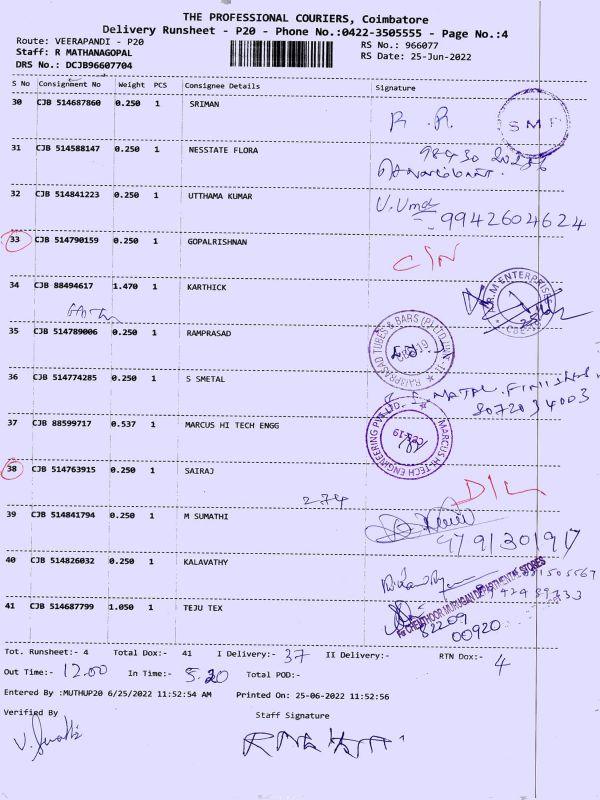 THE PROFESSIONAL COURIERS, Coimbatore
Delivery Runsheet - P20 - Phone No.:0422-3505555 - Page No.:4
Route: VEERAPANDI - P20
RS No.: 966077
Staff: R MATHANAGOPAL
RS Date: 25-Jun-2022
DRS No.: DCJB96607704
S No Consignment No Weight PCS Consignee Details Signature
30 CJB 514687860 0.250 1 SRIMAN
R. R.
S M F
31 CJB 514588147 0.250 1 NESSTATE FLORA
32 CJB 514841223 0.250 1 UTTHAMA KUMAR
U.Uma
9942604624
33 CJB 514790159 0.250 1 GOPALRISHNAN
C/N
34 CJB 88494617 1.470 1 KARTHICK
A.R.M ENTERPRISES
35 CJB 514789006 0.250 1 RAMPRASAD
RAMPRASAD TUBES & BARS (P) LTD. UNIT-II
36 CJB 514774285 0.250 1 S SMETAL
8072034003
37 CJB 88599717 0.537 1 MARCUS HI TECH ENGG
MARCUS HI-TECH ENGINEERING PVT. LTD.
CBE-19
38 CJB 514763915 0.250 1 SAIRAJ
D/L
274
39 CJB 514841794 0.250 1 M SUMATHI
40 CJB 514826032 0.250 1 KALAVATHY
CHENTHOOR MURUGAN DEPARTMENTAL STORES
41 CJB 514687799 1.050 1 TEJU TEX
82209
00920
Tot. Runsheet:- 4 Total Dox:- 41 I Delivery:- 37 II Delivery:- RTN Dox:- 4
Out Time:- 12.00 In Time:- 5.20 Total POD:-
Entered By :MUTHUP20 6/25/2022 11:52:54 AM Printed On: 25-06-2022 11:52:56
Verified By Staff Signature